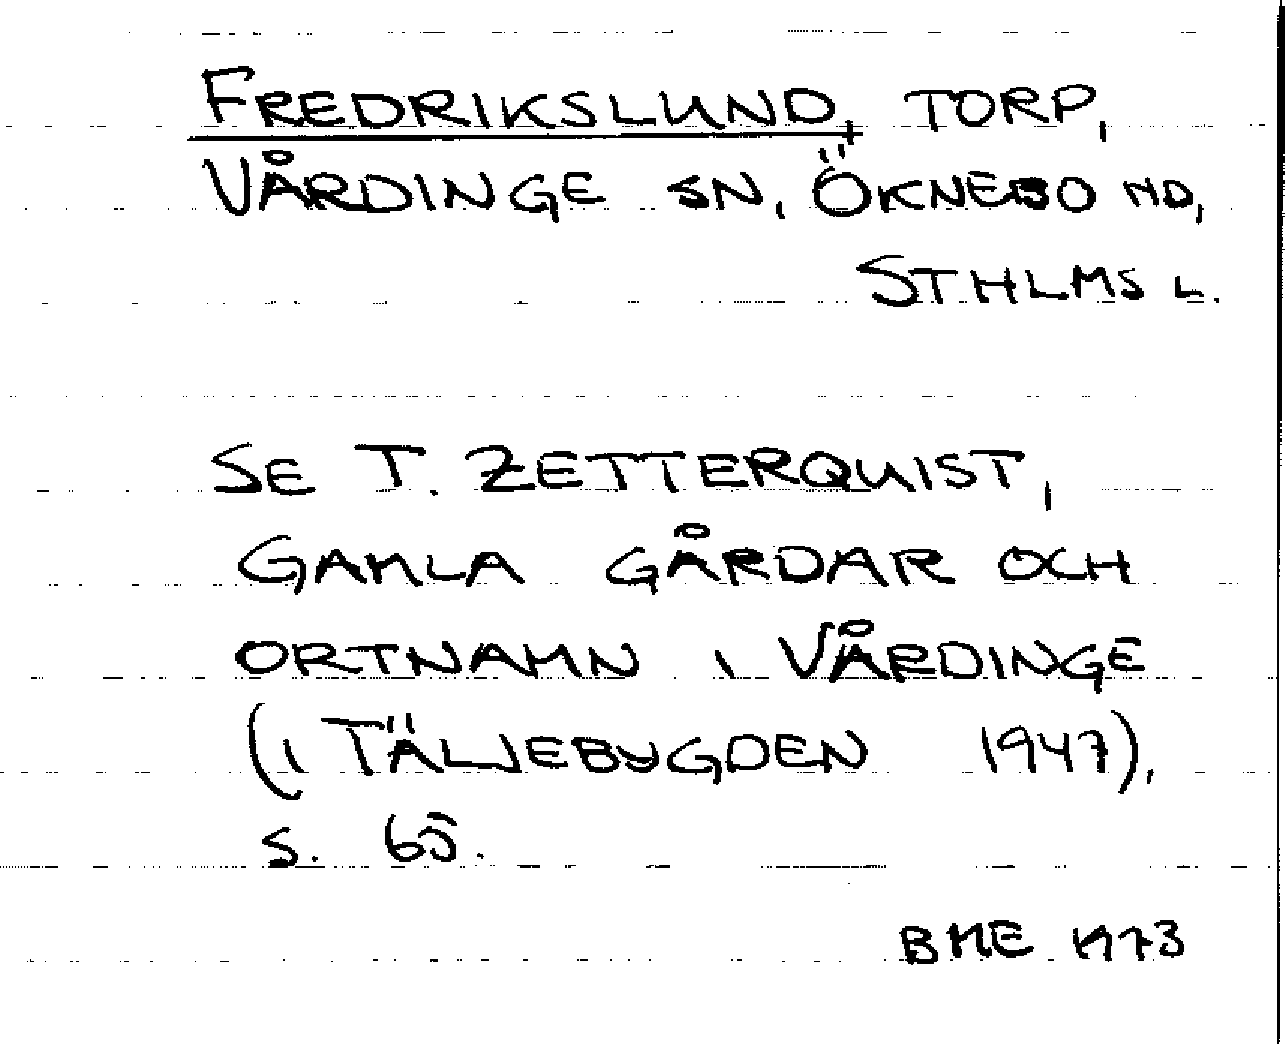 FREDRIKSLUND, TORP,
VÅRDINGE SN, ÖKNEBO HD,
STHLMS L.
SE T. ZETTERQUIST,
GAMLA GÅRDAR OCH
ORTNAMN I VÅRDINGE
(I TÄLJEBYGDEN 1947),
S. 65.
BME 1973